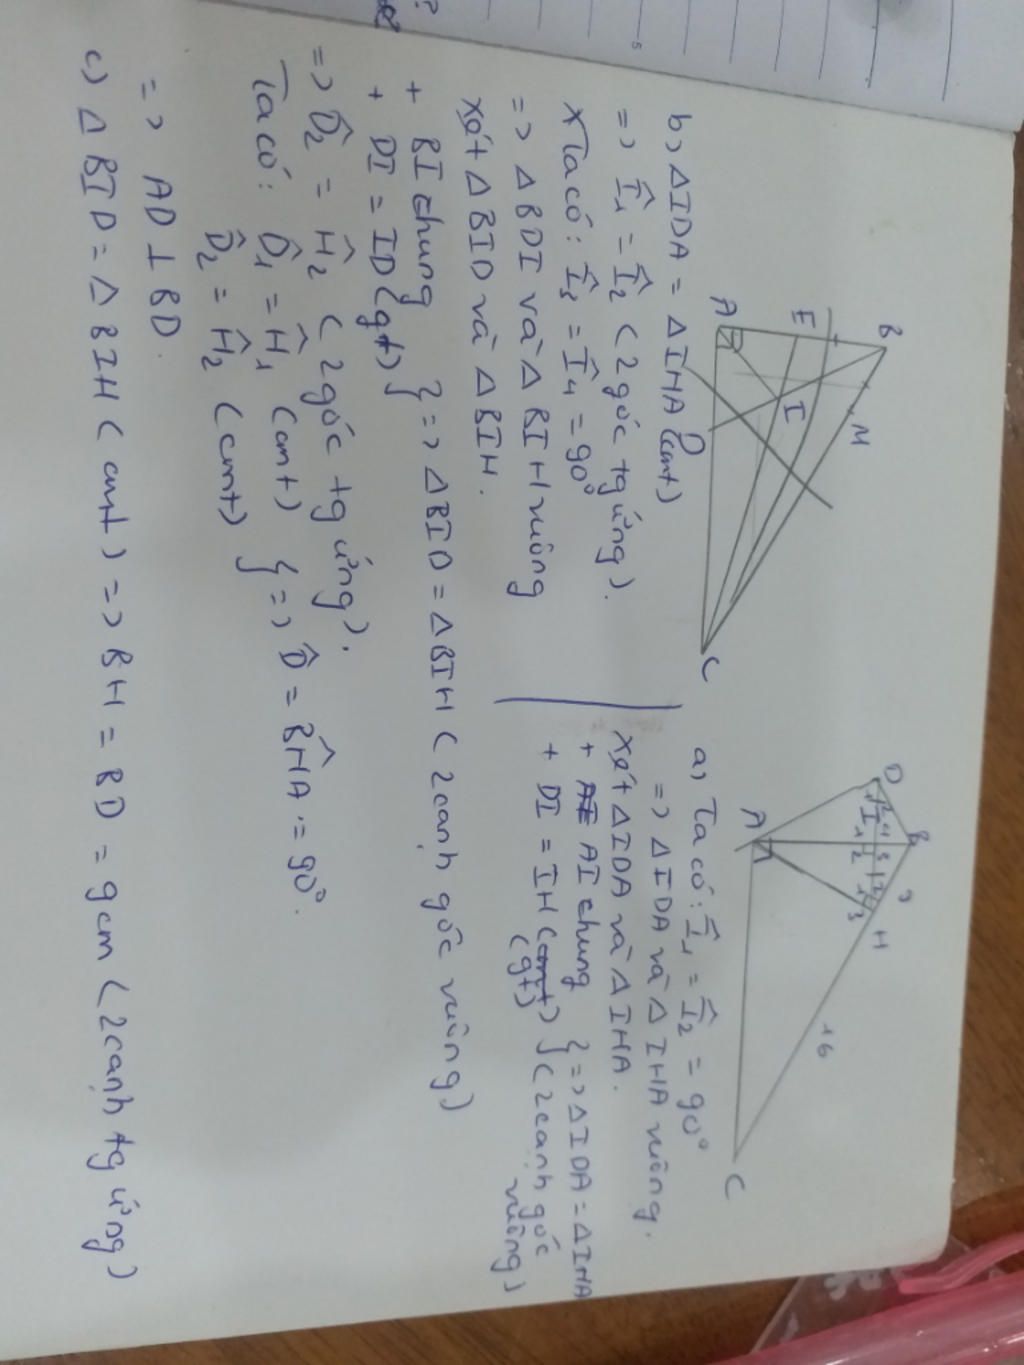 B
E
M
A
I
D
C
D
B
I
1
4
2
3
9
H
A
3
16
C
a, Ta có: Î1 = Î2 = 90°
=> Δ IDA và Δ IHA vuông.
Xét Δ IDA và Δ IHA.
+ AI chung
+ DI = IH (gt)
} => Δ IDA = Δ IHA
(2 cạnh góc
vuông)
b, Δ IDA = Δ IHA (cmt)
=> Î1 = Î2 (2 góc tg ứng).
x Ta có: Î3 = Î4 = 90°
=> Δ BDI và Δ BIH vuông
Xét Δ BID và Δ BIH.
+ BI chung
+ DI = ID (gt)
} => Δ BID = Δ BIH (2 cạnh góc vuông)
=> D̂2 = Ĥ2 (2 góc tg ứng).
Ta có: D̂1 = Ĥ1 (cmt)
D̂2 = Ĥ2 (cmt)
} => D̂ = BĤA = 90°.
=> AD ⊥ BD.
c, Δ BID = Δ BIH (cmt) => BH = BD = 9cm (2 cạnh tg ứng)